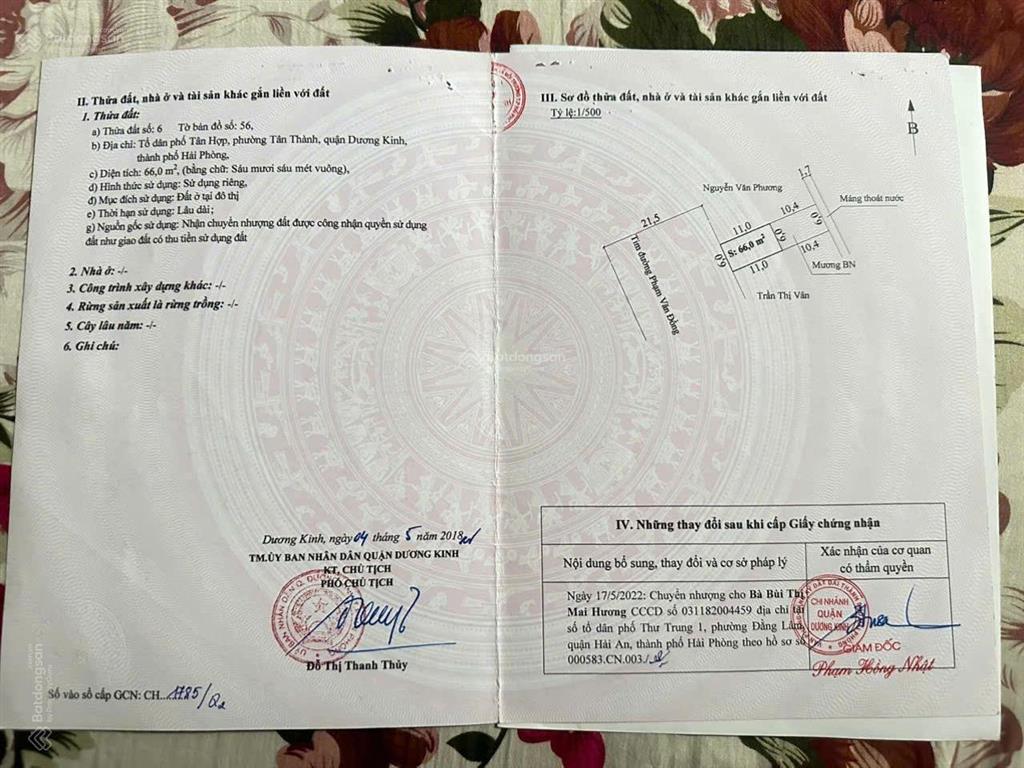 II. Thửa đất, nhà ở và tài sản khác gắn liền với đất
1. Thửa đất:
a) Thửa đất số: 6 Tờ bản đồ số: 56,
b) Địa chỉ: Tổ dân phố Tân Hợp, phường Tân Thành, quận Dương Kinh,
thành phố Hải Phòng,
c) Diện tích: 66,0 m², (bằng chữ: Sáu mươi sáu mét vuông),
d) Hình thức sử dụng: Sử dụng riêng,
đ) Mục đích sử dụng: Đất ở tại đô thị
e) Thời hạn sử dụng: Lâu dài;
g) Nguồn gốc sử dụng: Nhận chuyển nhượng đất được công nhận quyền sử dụng
đất như giao đất có thu tiền sử dụng đất
2. Nhà ở: -/-
3. Công trình xây dựng khác: -/-
4. Rừng sản xuất là rừng trồng: -/-
5. Cây lâu năm: -/-
6. Ghi chú:
Dương Kinh, ngày 04 tháng 5 năm 2018
TM.ỦY BAN NHÂN DÂN QUẬN DƯƠNG KINH
KT. CHỦ TỊCH
PHÓ CHỦ TỊCH
Đỗ Thị Thanh Thủy
Số vào sổ cấp GCN: CH...1785/
III. Sơ đồ thửa đất, nhà ở và tài sản khác gắn liền với đất
Tỷ lệ:1/500
B
1,7
Nguyễn Văn Phương
Máng thoát nước
21,5
11,0
10,4
6,0
S: 66,0 m²
6,0
6,0
11,0
10,4
Mương BN
Tim đường Phạm Văn Đồng
Trần Thị Vân
IV. Những thay đổi sau khi cấp Giấy chứng nhận
Nội dung bổ sung, thay đổi và cơ sở pháp lý
Xác nhận của cơ quan
có thẩm quyền
Ngày 17/5/2022: Chuyển nhượng cho Bà Bùi Thị
Mai Hương CCCD số 031182004459 địa chỉ tại
số tổ dân phố Thư Trung 1, phường Đằng Lâm,
quận Hải An, thành phố Hải Phòng theo hồ sơ số
000583.CN.003
CHI NHÁNH
QUẬN
DƯƠNG KINH
GIÁM ĐỐC
Phạm Hồng Nhật
Batdongsan
Batdongsan
Batdongsan